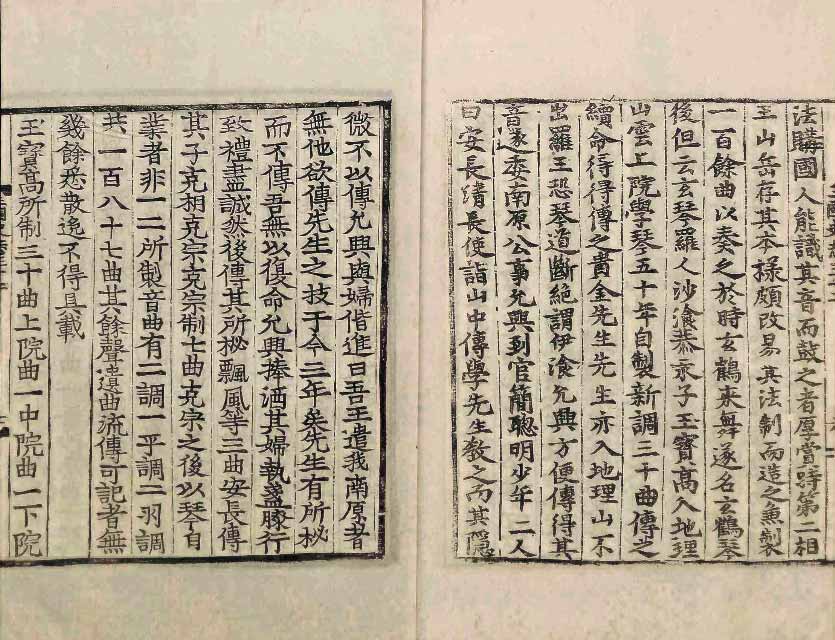 法購國人能識其音而鼓之者厚賞時第二相
王山岳存其本樣頗改易其法制而造之兼製
一百餘曲以奏之於時玄鶴來舞遂名玄鶴琴
後但云玄琴羅人沙飡恭永子玉寶高入地理
山雲上院學琴五十年自製新調三十曲傳之
續命得得傳之貴金先生先生亦入地理山不
出羅王恐琴道斷絶謂伊飡允興方便傳得其
音遂委南原公事允興到官簡聰明少年二人
曰安長清長使詣山中傳學先生教之而其隱
微不以傳允興與婦偕進曰吾王遣我南原者
無他欲傳先生之技于今三年矣先生有所秘
而不傳吾無以復命允興捧酒其婦執盞膝行
致禮盡誠然後傳其所秘飄風等三曲安長傳
其子克相克宗克宗制七曲克宗之後以琴自
業者非一二所製音曲有二調一平調二羽調
共一百八十七曲其餘聲遺曲流傳可記者無
幾餘悉散逸不得具載
玉寶高所制三十曲上院曲一中院曲一下院